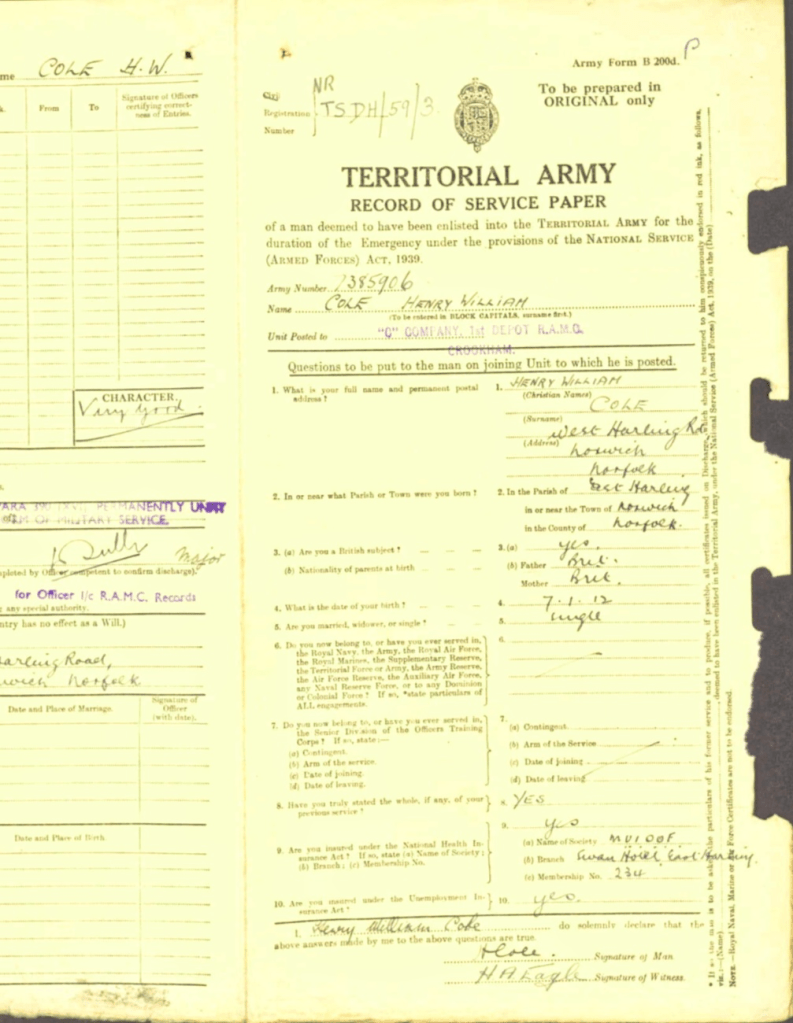 me COLE H.W.
k. From To Signature of Officers certifying correctness of Entries.
CHARACTER.
Very good.
PERMANENTLY UNFIT
OF MILITARY SERVICE.
Major
pleted by Officer competent to confirm discharge).
for Officer i/c R.A.M.C. Records
g any special authority.
ntry has no effect as a Will.)
arling Road,
wich Norfolk
Date and Place of Marriage. Signature of Officer (with date).
Date and Place of Birth.
Army Form B 200d. P
To be prepared in
ORIGINAL only
NR
Registration Number TSDH/59/3
TERRITORIAL ARMY
RECORD OF SERVICE PAPER
of a man deemed to have been enlisted into the TERRITORIAL ARMY for the
duration of the Emergency under the provisions of the NATIONAL SERVICE
(ARMED FORCES) ACT, 1939.
Army Number 7385906
Name COLE HENRY WILLIAM
(To be entered in BLOCK CAPITALS, surname first.)
Unit Posted to "C" COMPANY, 1st DEPOT R.A.M.C.
CROOKHAM.
Questions to be put to the man on joining Unit to which he is posted.
1. What is your full name and permanent postal address? 1. HENRY WILLIAM
(Christian Names)
COLE
(Surname)
(Address) West Harling Rd
Norwich
Norfolk
2. In or near what Parish or Town were you born? 2. In the Parish of East Harling
in or near the Town of Norwich
in the County of Norfolk.
3. (a) Are you a British subject? 3. (a) yes.
(b) Nationality of parents at birth (b) Father Brit.
Mother Brit.
4. What is the date of your birth? 4. 7.1.12
5. Are you married, widower, or single? 5. single
6. Do you now belong to, or have you ever served in, 6.
the Royal Navy, the Army, the Royal Air Force,
the Royal Marines, the Supplementary Reserve,
the Territorial Force or Army, the Army Reserve,
the Air Force Reserve, the Auxiliary Air Force,
any Naval Reserve Force, or to any Dominion
or Colonial Force? If so, *state particulars of
ALL engagements.
7. Do you now belong to, or have you ever served in, 7.
the Senior Division of the Officers Training
Corps? If so, state:—
(a) Contingent. (a) Contingent
(b) Arm of the service. (b) Arm of the Service
(c) Date of joining. (c) Date of joining
(d) Date of leaving. (d) Date of leaving
8. Have you truly stated the whole, if any, of your previous service? 8. YES
9. Are you insured under the National Health Insurance Act? If so, state (a) Name of Society; (b) Branch; (c) Membership No. 9. yes
(a) Name of Society MUIOOF
(b) Branch Swan Hotel East Harling.
(c) Membership No. 234
10. Are you insured under the Unemployment Insurance Act? 10. yes.
I, Henry William Cole do solemnly declare that the
above answers made by me to the above questions are true.
HCole. Signature of Man
H A Eagle Signature of Witness.
NOTE.—Royal Naval, Marine or Air Force Certificates are not to be endorsed.